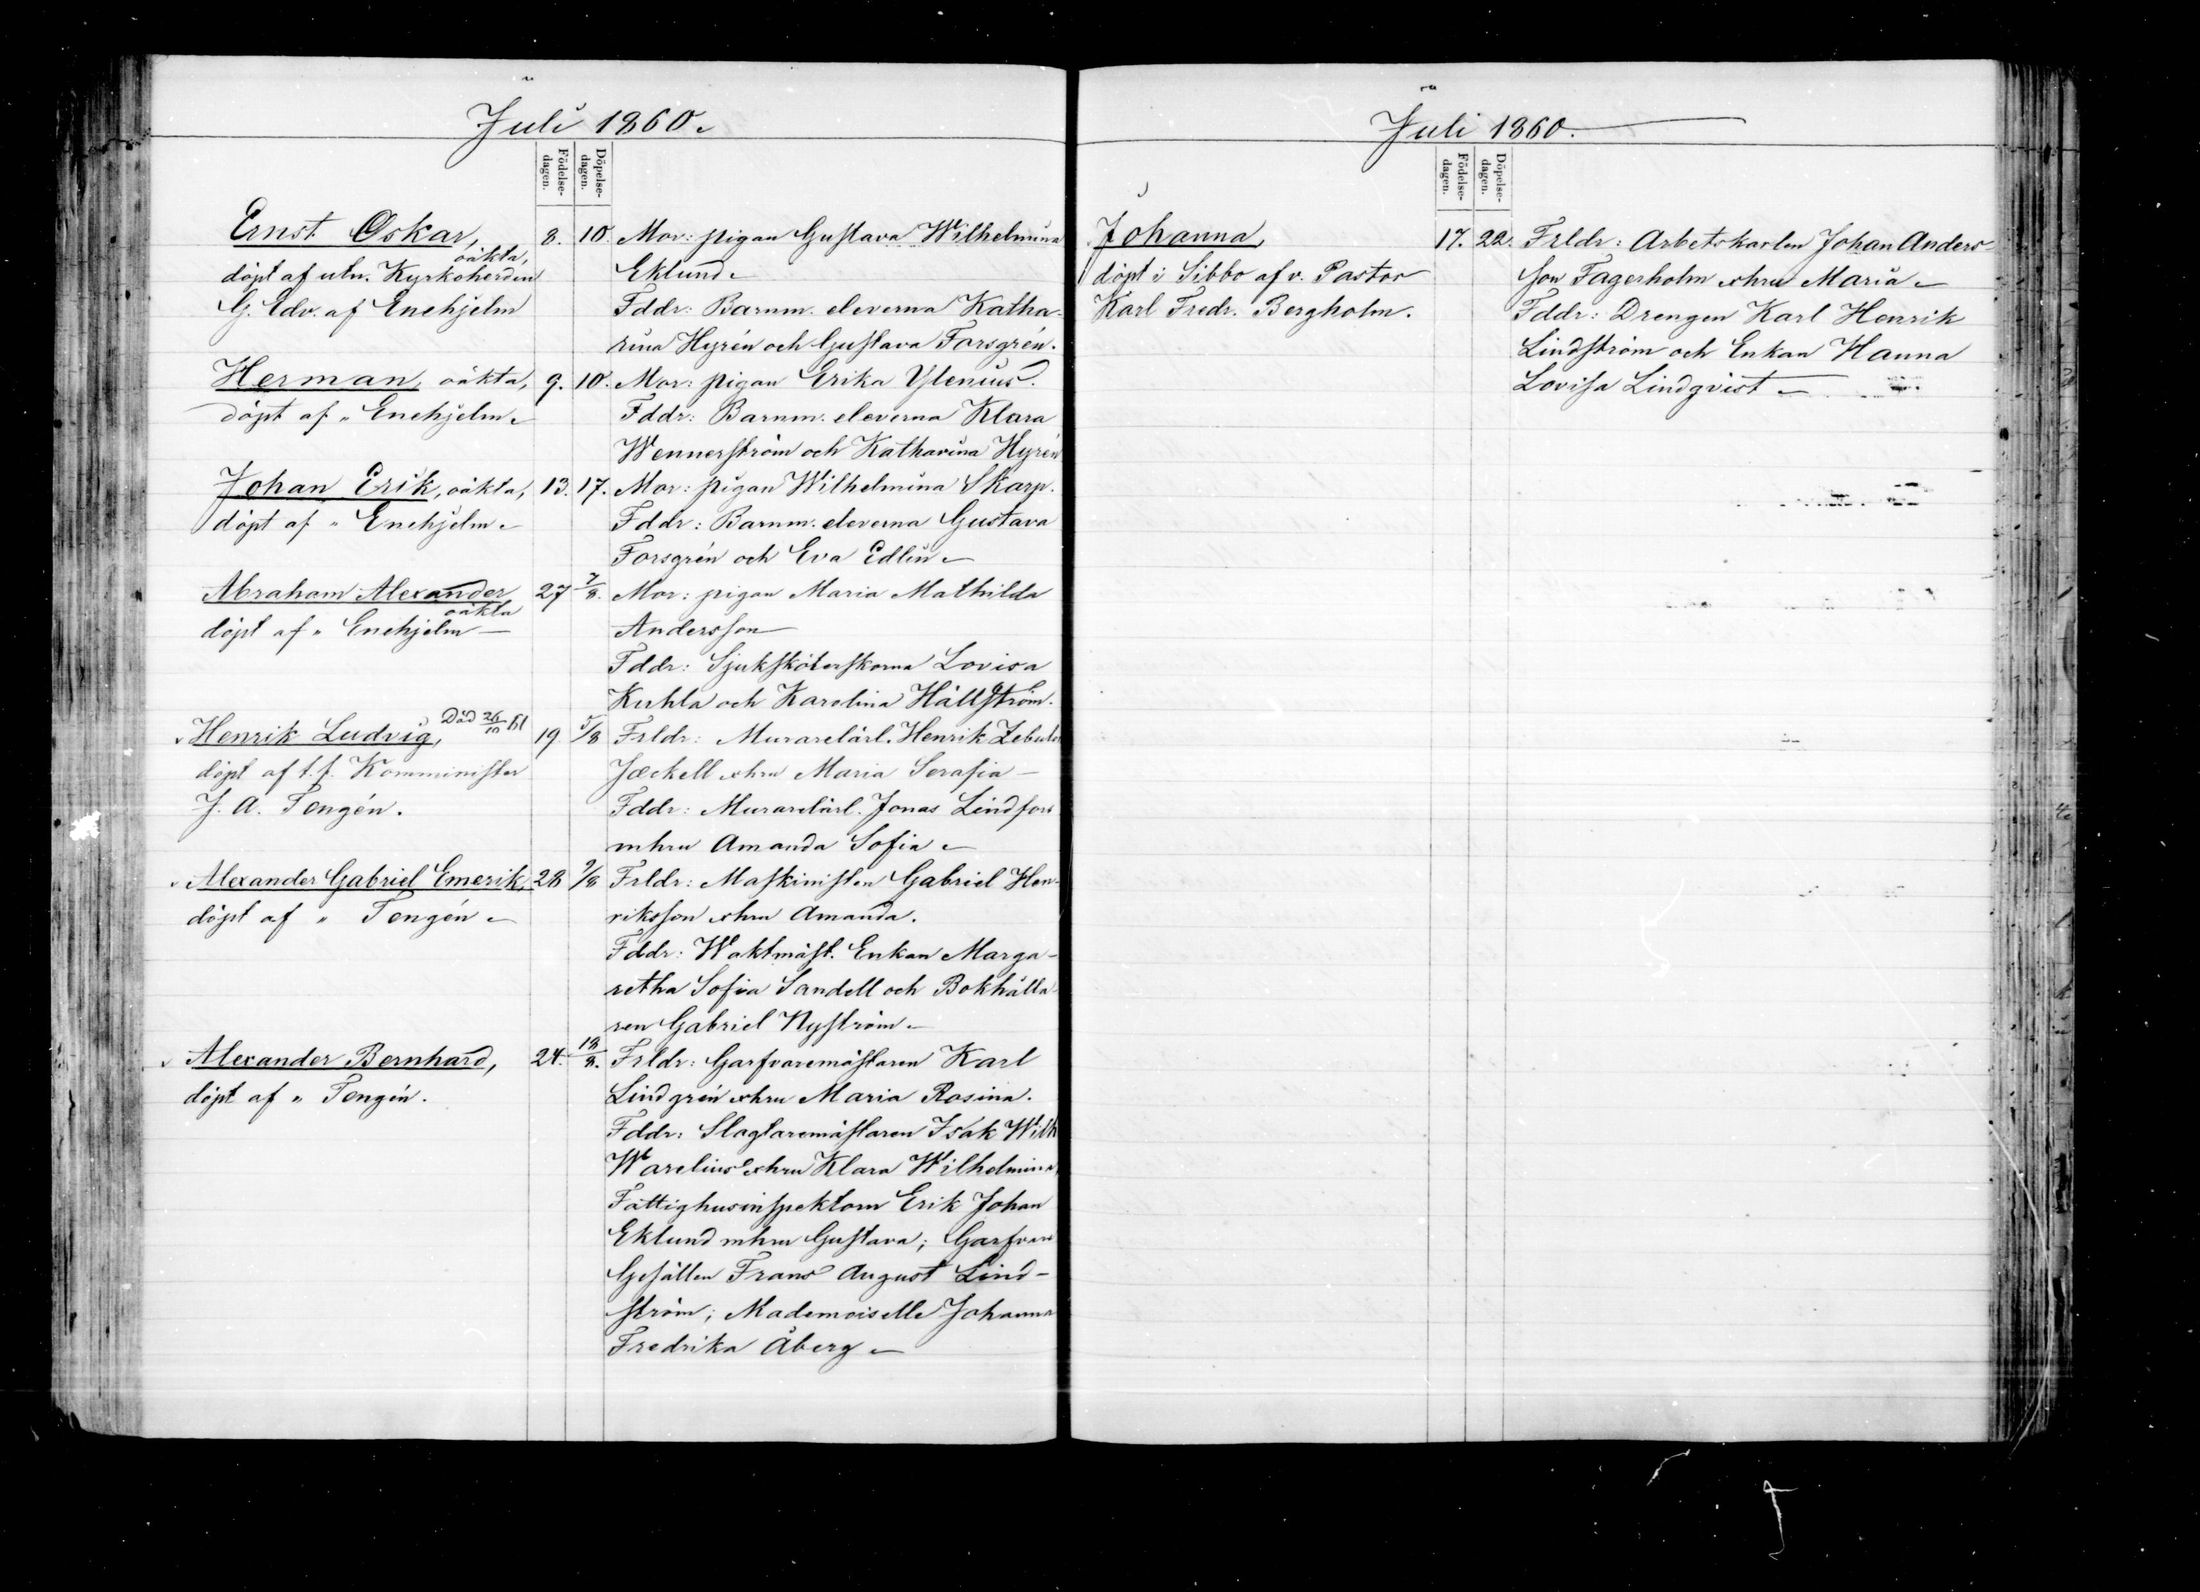 Juli 1860.
Födelse-
dagen.
Döpelse-
dagen.
Ernst Oskar,
oäkta,
döpt af utn. Kyrkoherden
G. Edv. af Enehjelm
8. 10.
Mor: pigan Gustava Wilhelmina
Eklund
Fddr: Barnm. eleverna Katha-
rina Hyrén och Gustava Forsgrén.
Herman, oäkta,
döpt af " Enehjelm
9. 10.
Mor: pigan Erika Ylenius.
Fddr: Barnm. eleverna Klara
Wennerström och Katharina Hyrén
Johan Erik, oäkta,
döpt af " Enehjelm
13. 17.
Mor: pigan Wilhelmina Skarp.
Fddr: Barnm. eleverna Gustava
Forsgrén och Eva Edlin
Abraham Alexander
oäkta
döpt af " Enehjelm
27 7/8.
Mor: pigan Maria Mathilda
Andersson
Fddr: Sjuksköterskorna Lovisa
Kuhla och Karolina Hällström.
Död 26/10 61
Henrik Ludvig,
döpt af t.f. Komminister
J. A. Tengén.
19 5/8
Frldr: Murarelärl. Henrik
Jæckell o hru Maria Serafia
Fddr: Murarelärl. Jonas Lindfors
m hru Amanda Sofia
Alexander Gabriel Emerik,
döpt af " Tengén
28 9/8
Frldr: Maskinisten Gabriel Hen-
riksson o hru Amanda.
Fddr: Waktmäst. Enkan Marga-
retha Sofia Sandell och Bokhålla-
ren Gabriel Nyström
Alexander Bernhard,
döpt af " Tengén.
24. 18/8.
Frldr: Garfvaremästaren Karl
Lindgrén o hru Maria Rosina.
Fddr: Slagtaremästaren Isak Wilh
Warelius o hru Klara Wilhelmina,
Fattighusinspektorn Erik Johan
Eklund m hru Gustava; Garfvare
Gesällen Frans August Lind-
ström; Mademoiselle Johanna
Fredrika Åberg
Juli 1860.
Födelse-
dagen.
Döpelse-
dagen.
Johanna,
döpt i Sibbo af v. Pastor
Karl Fredr. Bergholm.
17. 22.
Frldr: Arbetskarlen Johan Anders
son Fagerholm o hru Maria
Fddr: Drengen Karl Henrik
Lindström och Enkan Hanna
Lovisa Lindqvist